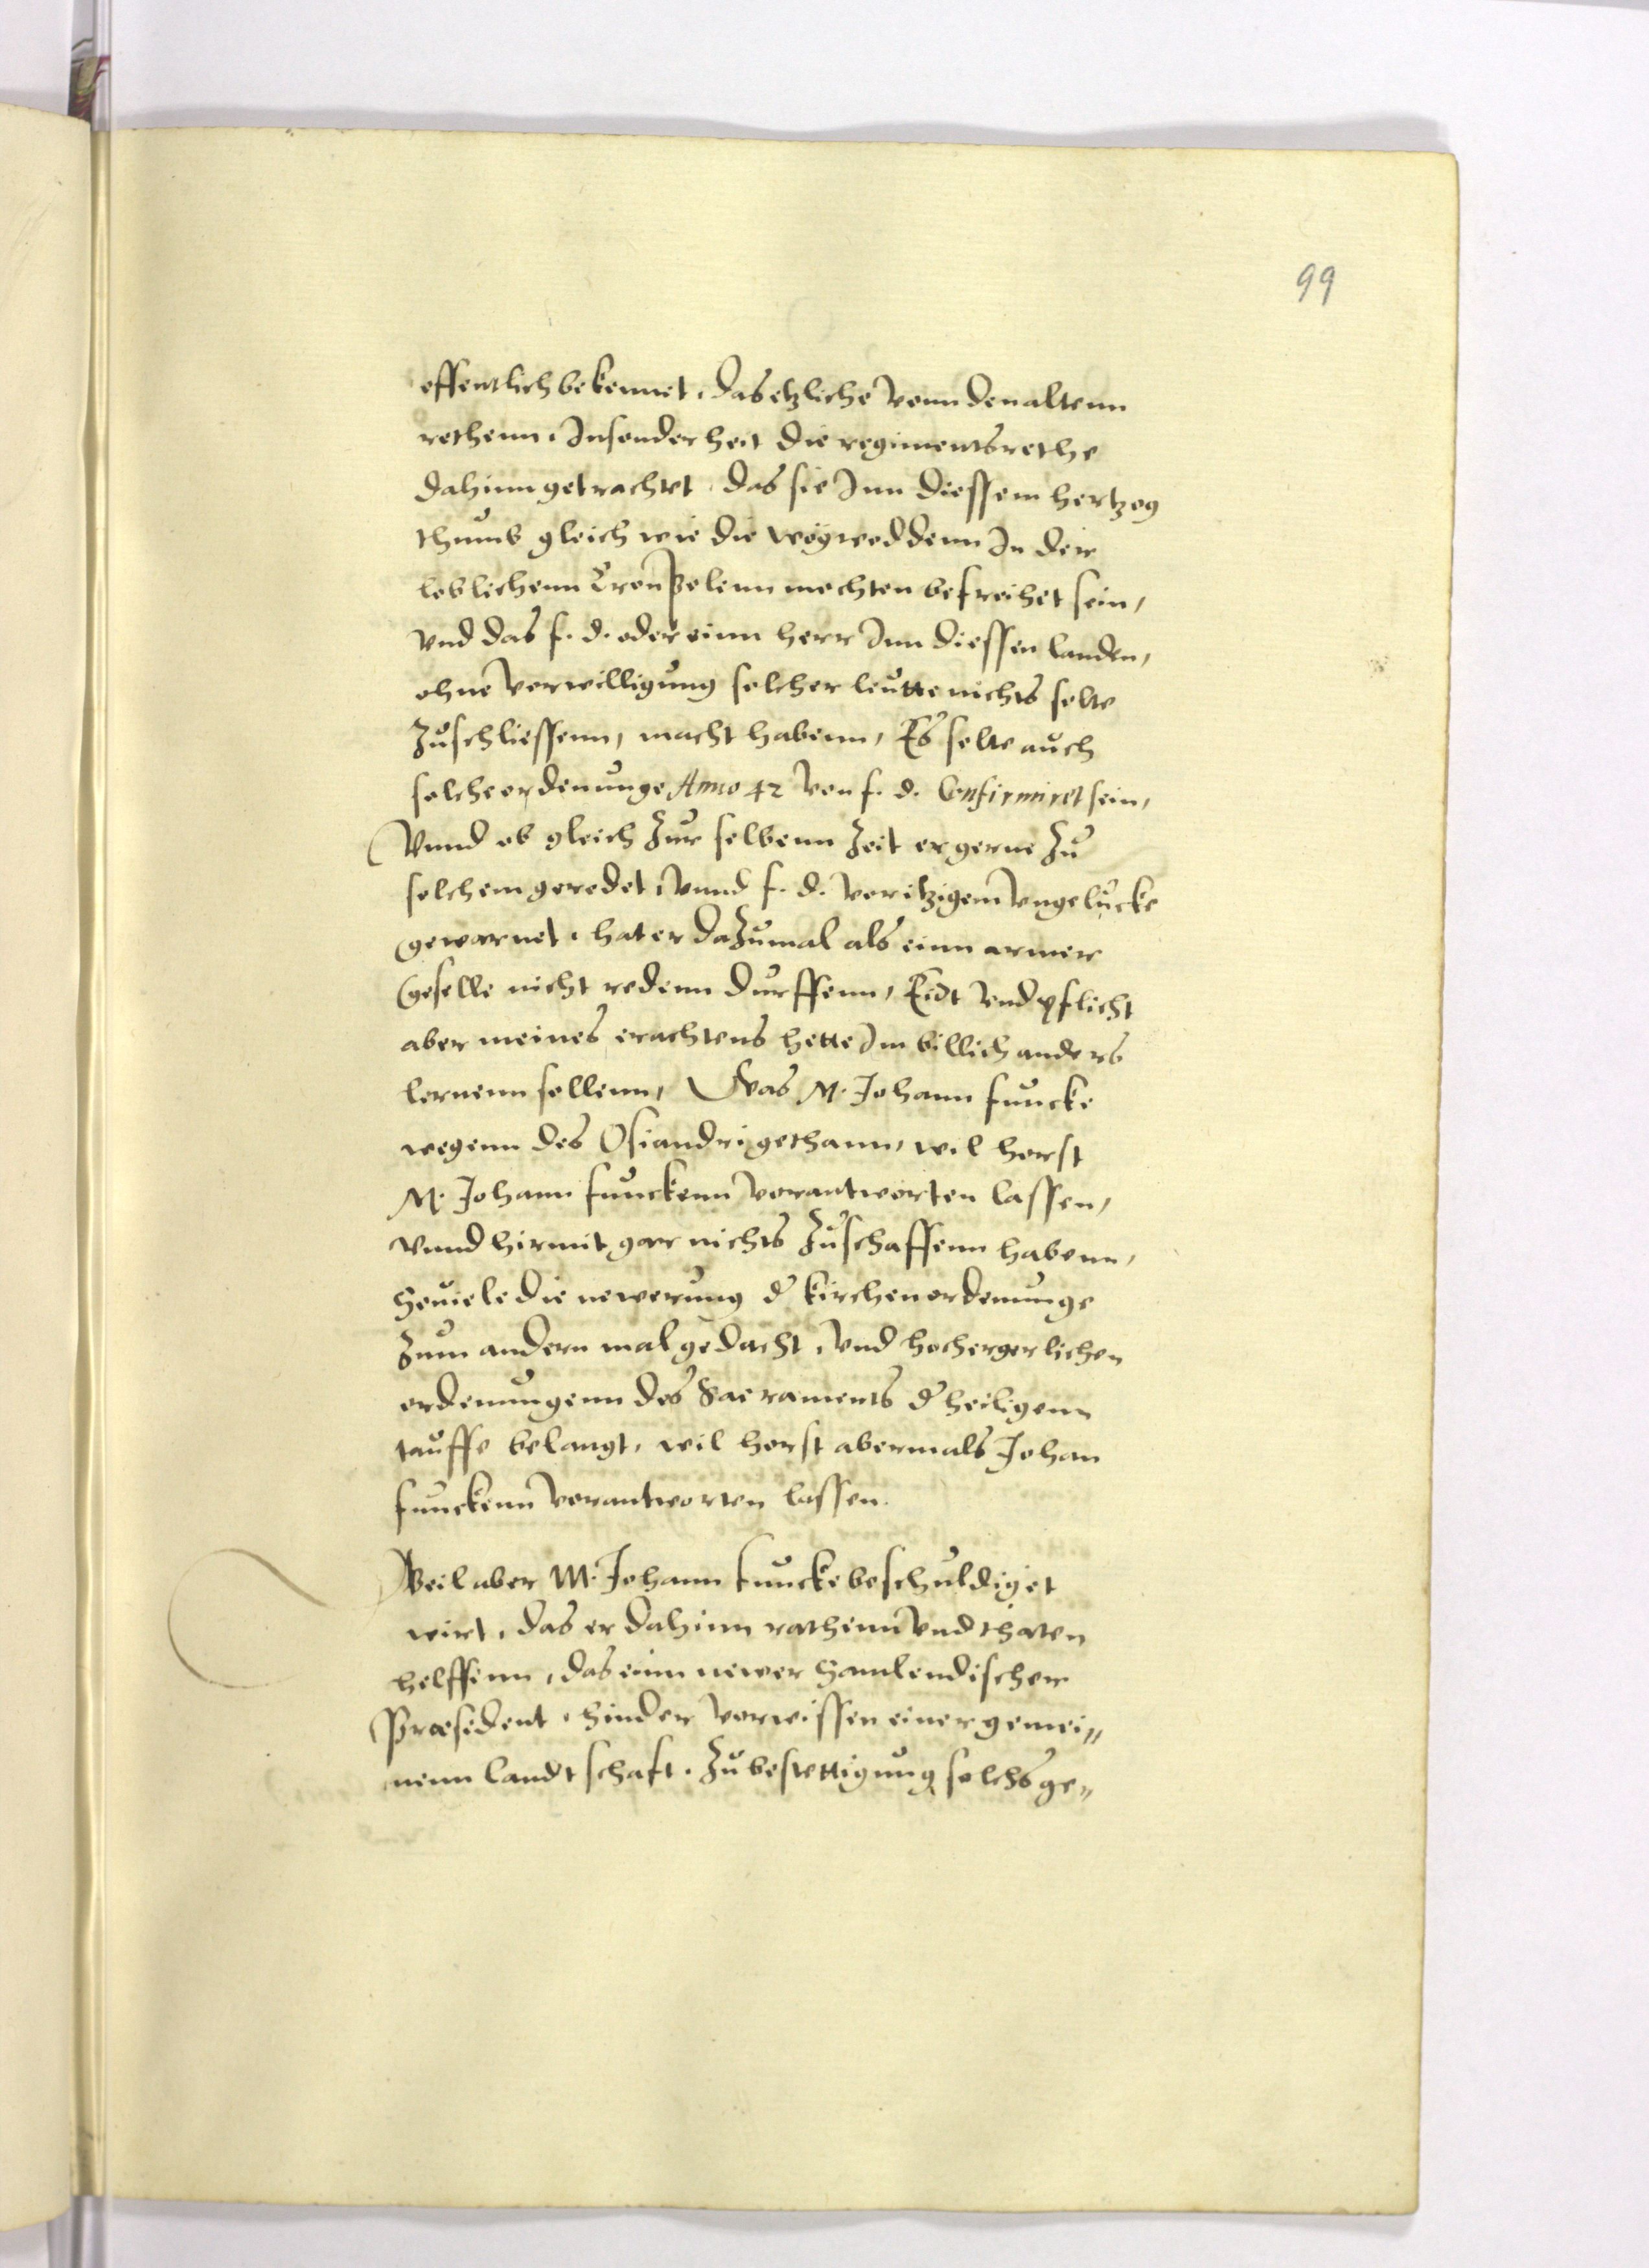 99
offentlich bekennet, das etzliche vonn den altenn
rethenn, Insonderheit die regimentsrethe
dahinn getrachtet, das sie Inn diessem hertzog
thumb gleich wie die woywoddenn In der
loblichenn Cron Polenn mochten befreihet sein,
vnd das f. d. oder einn herr Inn diessen landen,
ohne vorwilligung solcher leutte nichts solte
zuschliessenn, macht habenn, Es solte auch
solche ordenunge Anno 42 von f. d. Confirmiret sein,
Vnnd ob gleich zur selbenn zeit er gerne zu
solchem geredet, vnnd f. d. vor itzigem vngelucke
gewarnet, hat er dazumal als einn armer
geselle nicht redenn durffenn, Eidt vnd pflicht
aber meines erachtens hette Im billich anders
lernenn sollenn, Was M. Johann funcke
wegenn des Osiandri gethann, wil horst
M. Johann funckenn vorantworten lassen,
vnnd hirmit gar nichts zuschaffenn habenn,
Souiele die newerung d kirchenordenunge
zum andern mal gedacht, vnd hochergerlichen
ordenungenn des Sacraments d heiligenn
tauffe belangt, wil horst abermals Johan
funckenn vorantworten lassen.
Weil aber M. Johann funcke beschuldiget
wirt, das er dahinn rathenn vnd thaten
helffenn, das einn newer Samlendischer
Præsident, hinder vorwissen einer gemei„
nenn landtschaft, zu bestettigung solchs ge„